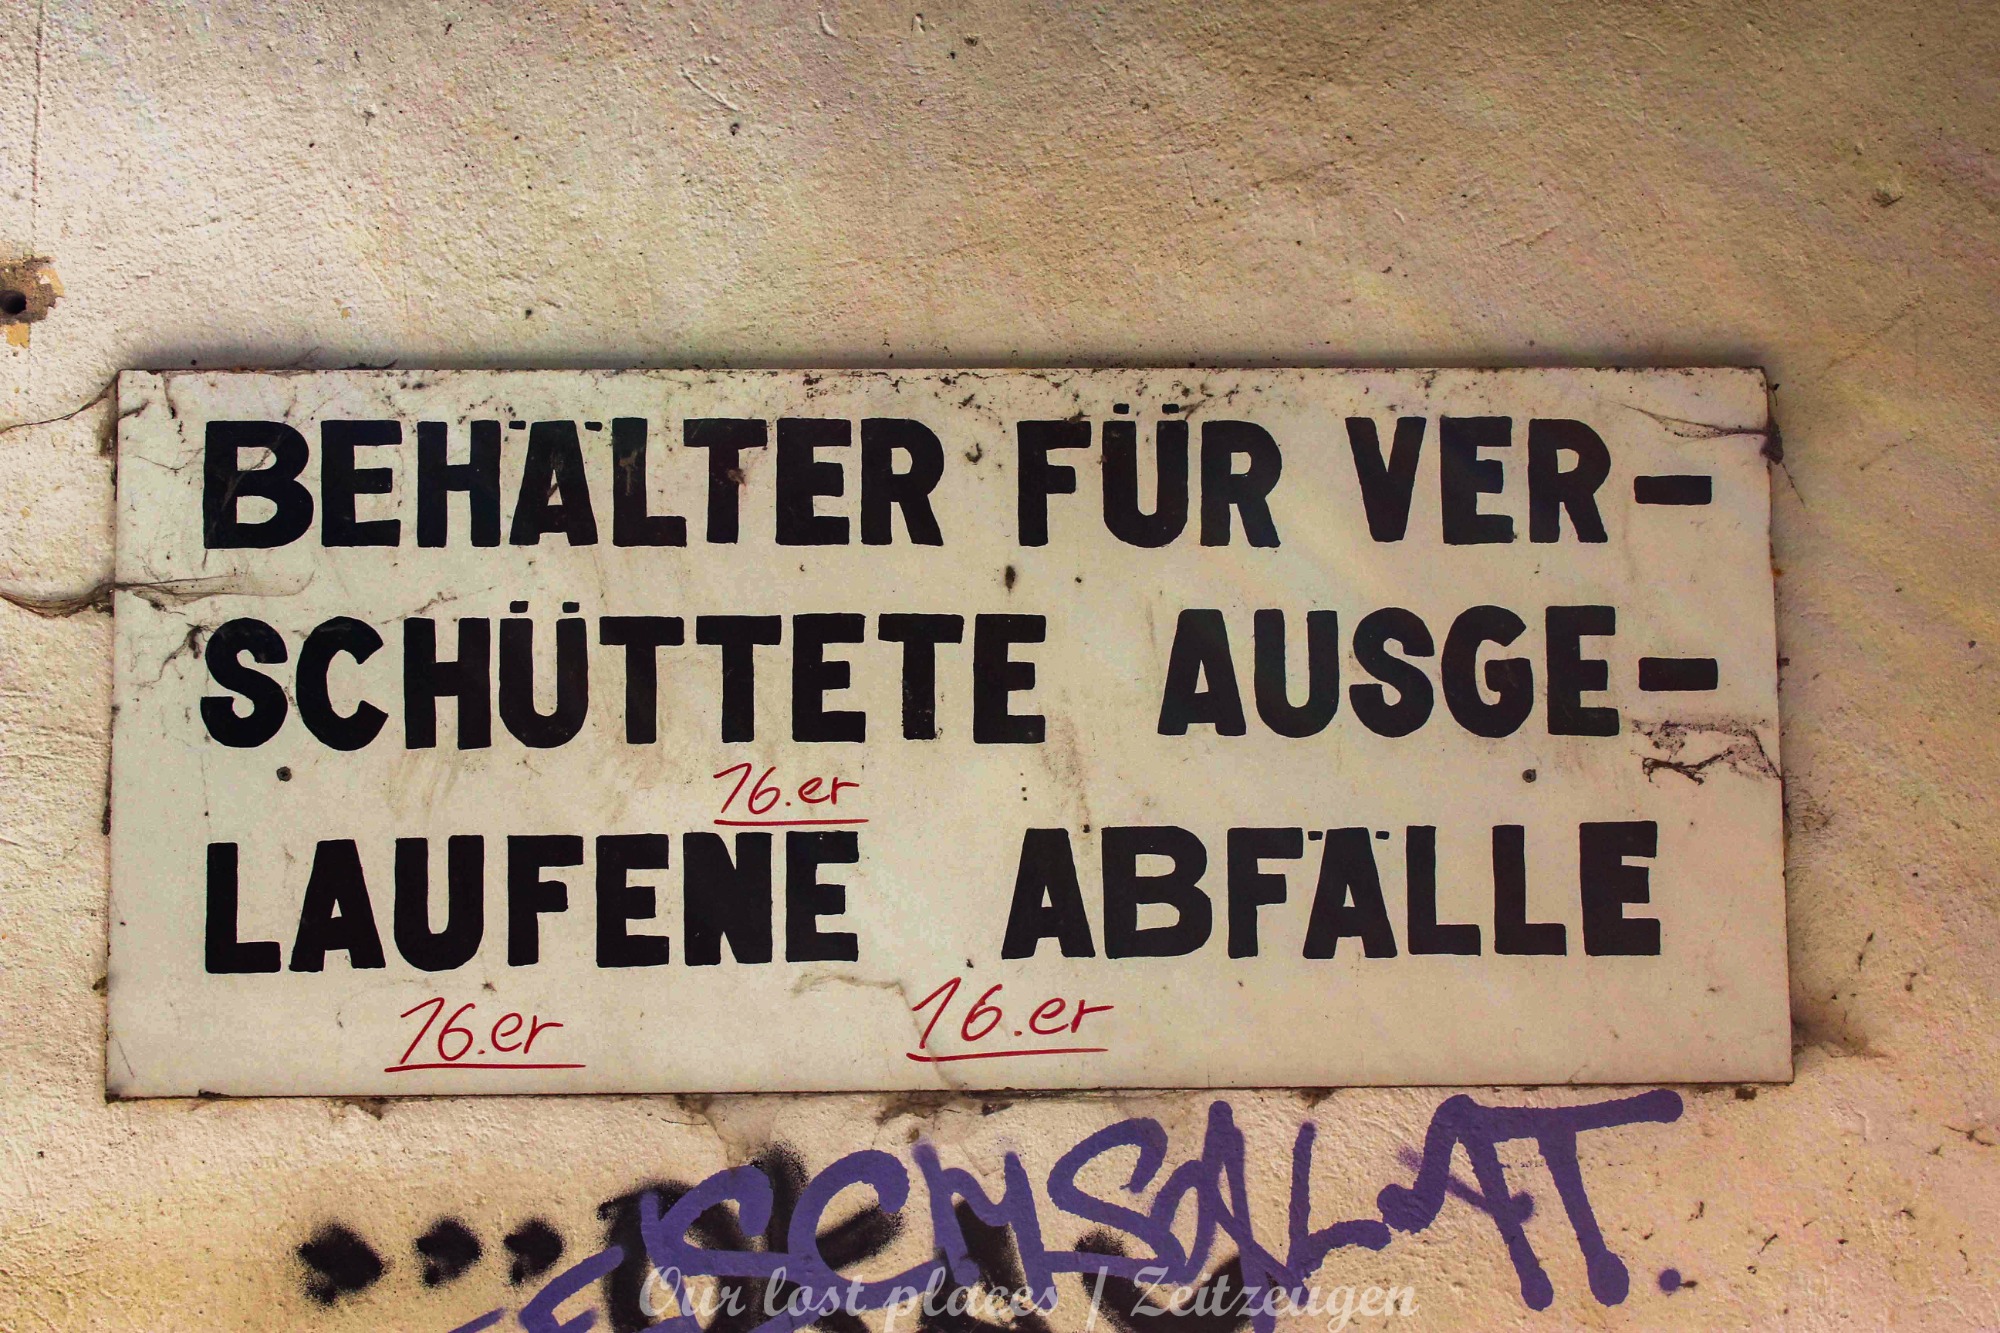 BEHÄLTER FÜR VER-
SCHÜTTETE AUSGE-
16.er
LAUFENE ABFÄLLE
16.er 16.er
Our lost places | Zeitzeugen